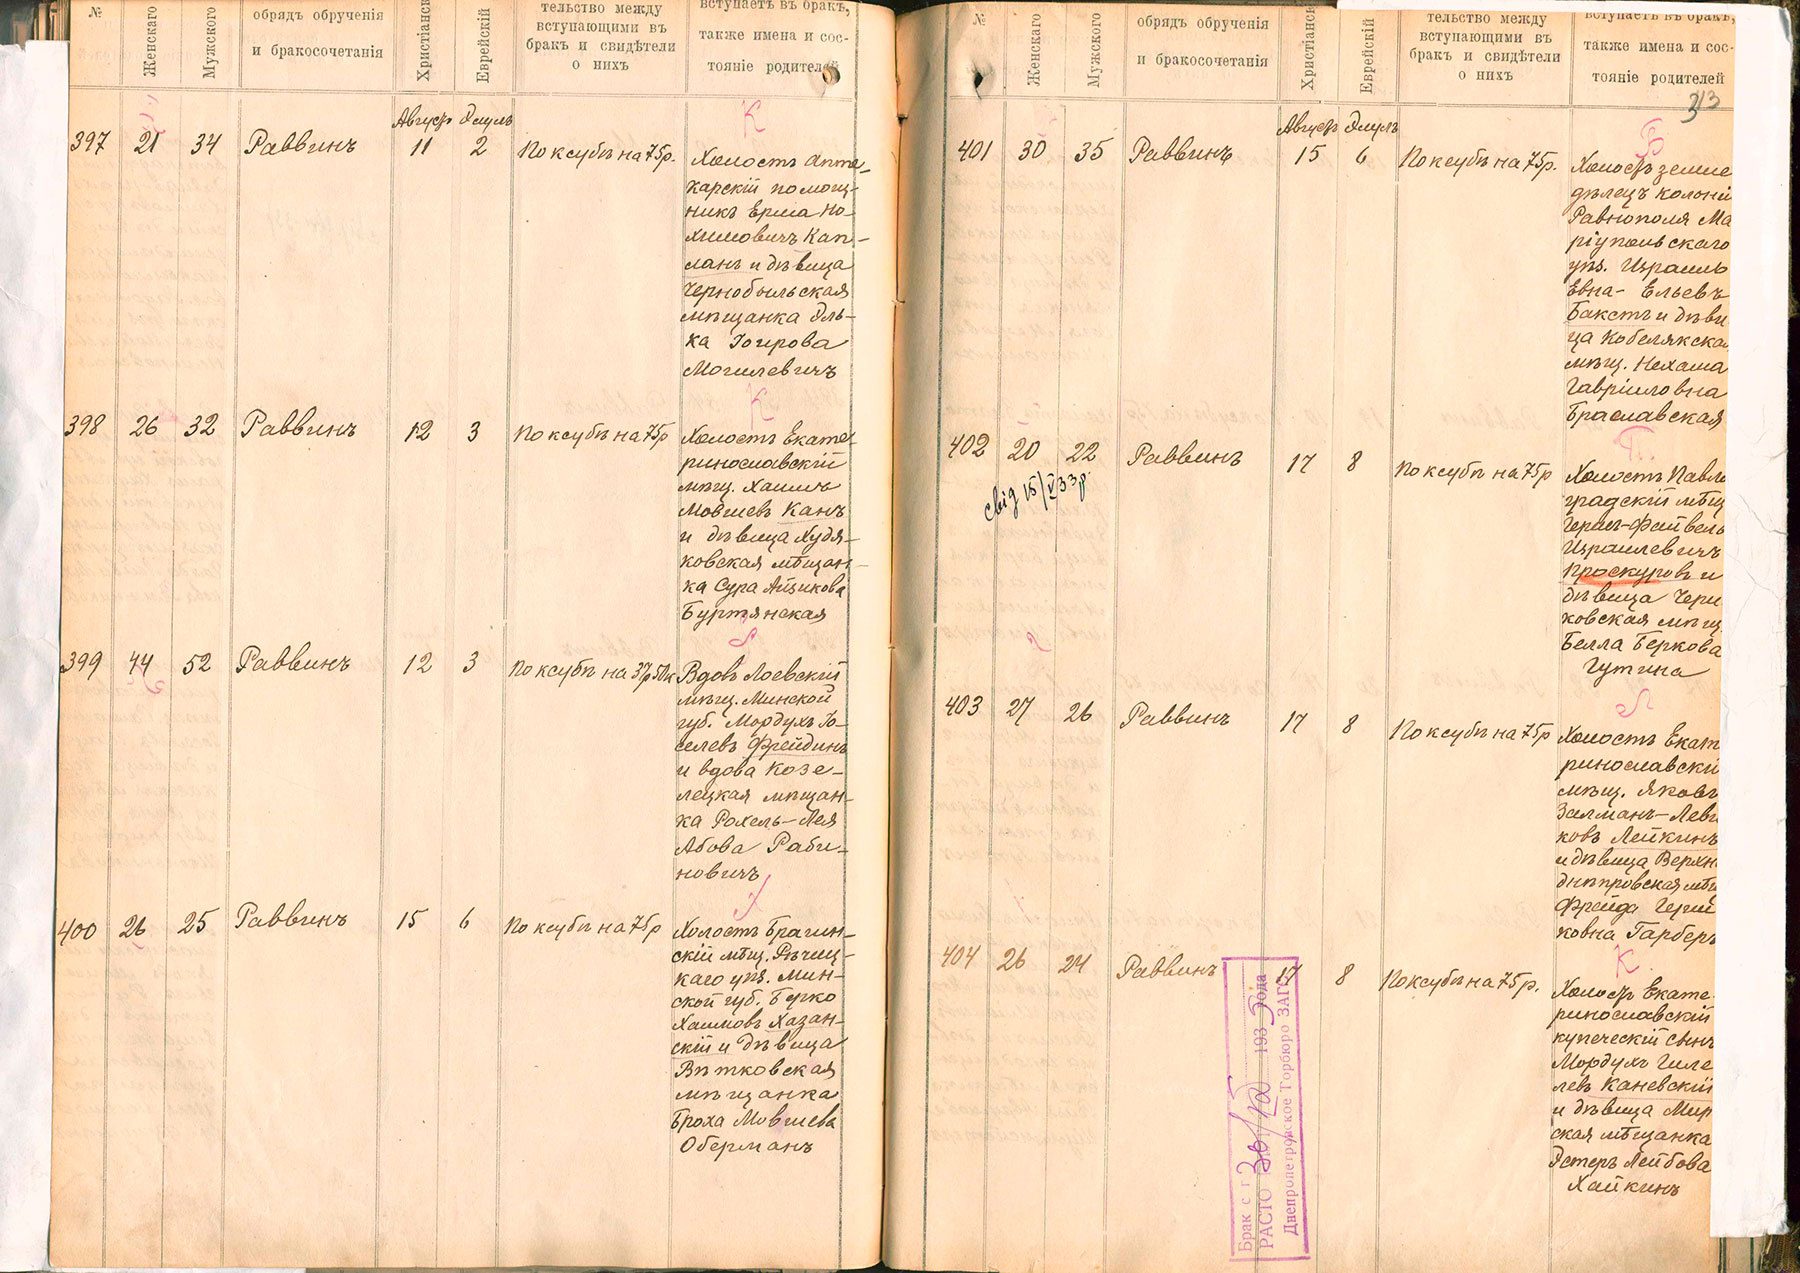 №
Женскаго
Мужского
обрядъ обрученія
и бракосочетанія
Христіанск
Еврейскій
тельство между
вступающими въ
бракъ и свидѣтели
о нихъ
вступаетъ въ бракъ,
также имена и сос-
тояніе родителей
Августъ Элулъ
К
397 21 34 Раввинъ 11 2 По ксубѣ на 75р.
Холостъ апте-
карскій помощ-
никъ Ерша Но-
химовичъ Кап-
ланъ и дѣвица
Чернобыльская
мѣщанка Эль-
ка
Могилевичъ
К
398 26 32 Раввинъ 12 3 По ксубѣ на 75р
Холостъ Екате-
ринославскій
мѣщ. Хаимъ
Мовшевъ Канъ
и дѣвица Худя-
ковская мѣщан-
ка Сура Айзикова
Буртянская
399 44 52 Раввинъ 12 3 По ксубѣ на 37р 50к
Вдовъ Лоевскій
мѣщ. Минской
губ. Мордухъ Іо-
селевъ Фрейдинъ
и вдова Козе-
лецкая мѣщан-
ка Рохель-Лея
Абова Раби-
новичъ
Х
400 26 25 Раввинъ 15 6 По ксубѣ на 75р
Холостъ Брагин-
скій мѣщ. Рѣчиц-
каго уѣз. Мин-
ской губ. Берко
Хаимовъ Хазан-
скій и дѣвица
Вѣтковская
мѣщанка
Броха Мовшева
Оберманъ
№
Женскаго
Мужского
обрядъ обрученія
и бракосочетанія
Христіанск
Еврейскій
тельство между
вступающими въ
бракъ и свидѣтели
о нихъ
вступаетъ въ бракъ,
также имена и сос-
тояніе родителей
313
Августъ Элулъ
Б
401 30 35 Раввинъ 15 6 По ксубѣ на 75р.
Холостъ земле
дѣлецъ колоніи
Равнополя Ма
ріупольскаго
уѣз. Израиль
Евна-Ельевъ
Бакстъ и дѣви
ца Кобелякская
мѣщ. Нехама
Гавріиловна
Браславская
П.
402 20 22 Раввинъ 17 8 По ксубѣ на 75р
свід 15/V 33р
Холостъ Павло
градскій мѣщ
Герш-Файвель
Израилевичъ
Проскуровъ и
дѣвица Чери
ковская мѣщ
Белла Беркова
Гутина
Л
403 27 26 Раввинъ 17 8 По ксубѣ на 75р
Холостъ Екате
ринославскі
мѣщ. Яковъ
Залманъ-Леви
ковъ Лейкинъ
и дѣвица Верхне
днѣпровская мѣщ
Фрейда Герш
ковна Гарберъ
К
404 26 24 Раввинъ 17 8 По ксубѣ на 75р.
Холостъ Екате-
ринославскій
купеческій сынъ
Мордухъ Гиле
левъ Каневскій
и дѣвица Мир
ская мѣщанка
Эстеръ Лейбова
Хайкинъ
Брак с г.
РАСТО 193 5 года
Днепропетровское Горбюро ЗАГС